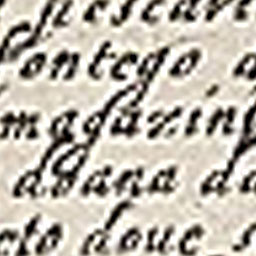 pescari
Pontego a
magazin
doana da
cto doue s